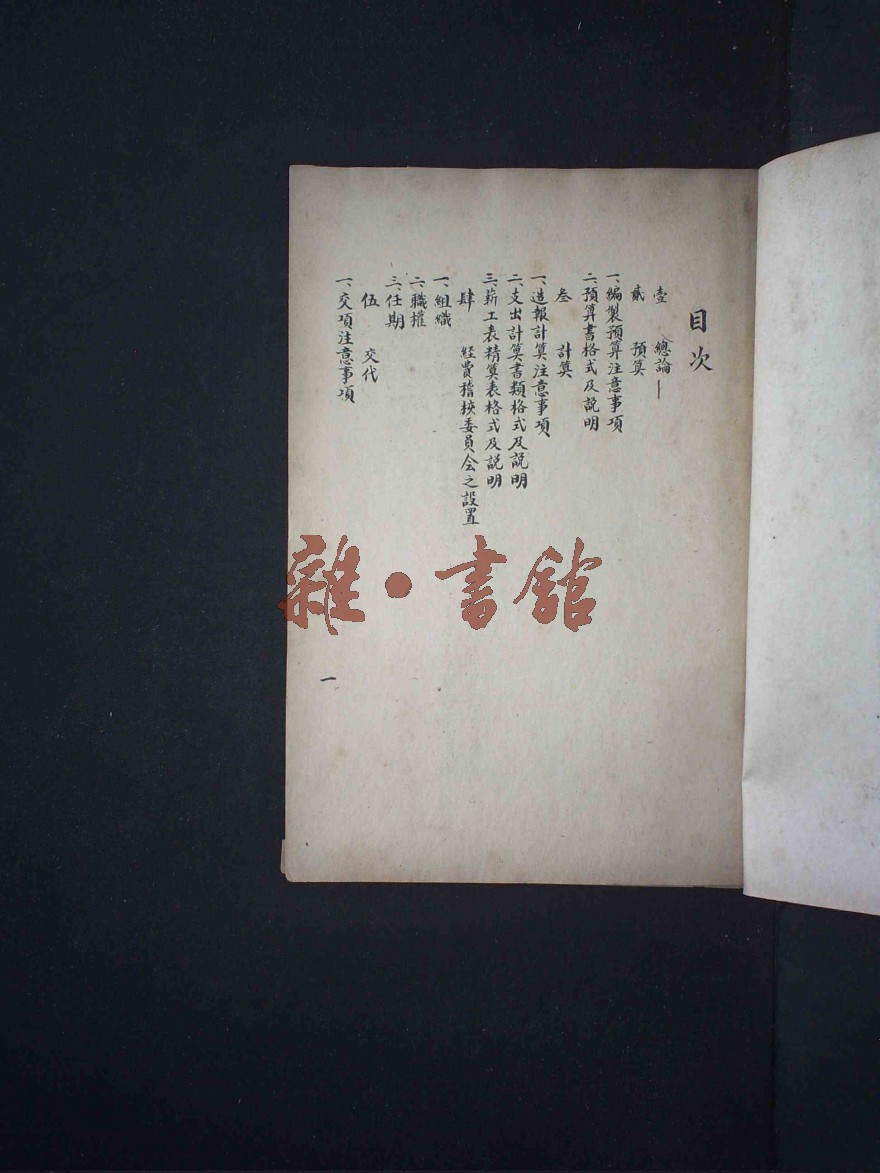 目次
壹 總論
貳 預算
一、編製預算注意事項
二、預算書格式及說明
叁 計算
一、造報計算注意事項
二、支出計算書類格式及說明
三、薪工表精算表格式及説明
肆 経費稽核委員会之設置
一、組織
二、職權
三、任期
伍 交代
一、交項注意事項
一
雜・書館